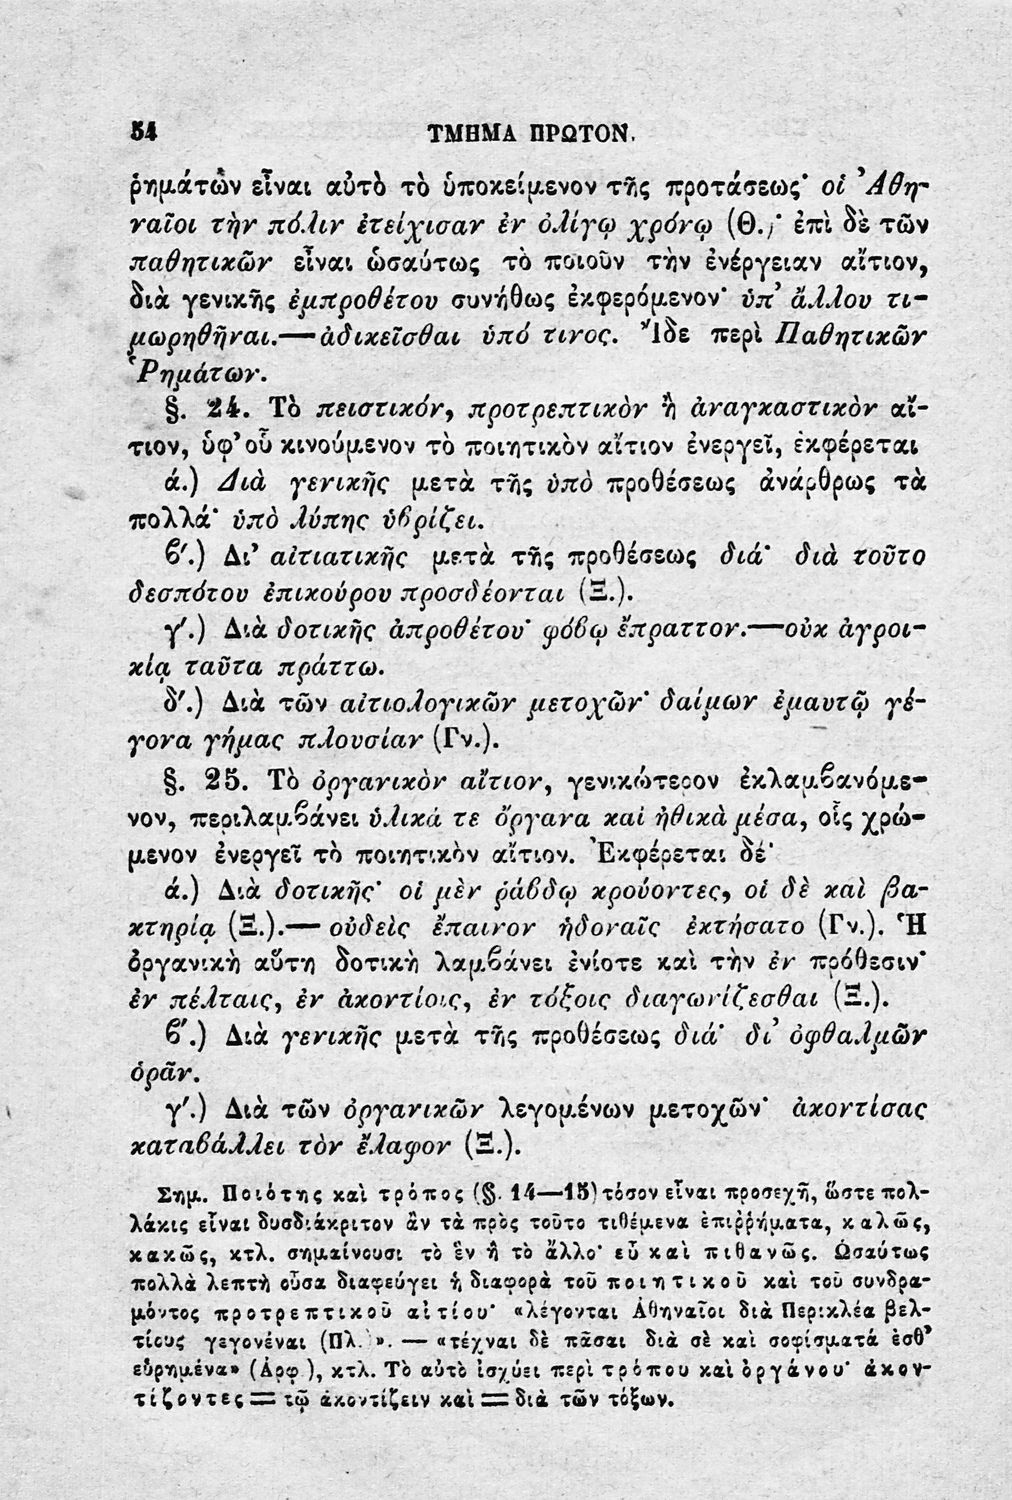 54 ΤΜΗΜΑ ΠΡΩΤΟΝ.
ῥημάτων εἶναι αὐτὸ τὸ ὑποκείμενον τῆς προτάσεως· οἱ Ἀθη-
ναῖοι τὴν πόλιν ἐτείχισαν ἐν ὀλίγῳ χρόνῳ (Θ.)· ἐπὶ δὲ τῶν
παθητικῶν εἶναι ὡσαύτως τὸ ποιοῦν τὴν ἐνέργειαν αἴτιον,
διὰ γενικῆς ἐμπροθέτου συνήθως ἐκφερόμενον· ὑπ' ἄλλου τι-
μωρηθῆναι.—ἀδικεῖσθαι ὑπό τινος. Ἴδε περὶ Παθητικῶν
Ῥημάτων.
§. 24. Τὸ πειστικόν, προτρεπτικὸν ἢ ἀναγκαστικὸν αἴ-
τιον, ὑφ' οὗ κινούμενον τὸ ποιητικὸν αἴτιον ἐνεργεῖ, ἐκφέρεται
ά.) Διὰ γενικῆς μετὰ τῆς ὑπὸ προθέσεως ἀνάρθρως τὰ
πολλά· ὑπὸ λύπης ὑβρίζει.
ϐ'.) Δι' αἰτιατικῆς μετὰ τῆς προθέσεως διά· διὰ τοῦτο
δεσπότου ἐπικούρου προσδέονται (Ξ.).
γ'.) Διὰ δοτικῆς ἀπροθέτου· φόβῳ ἔπραττον.—οὐκ ἀγροι-
κίᾳ ταῦτα πράττω.
δ'.) Διὰ τῶν αἰτιολογικῶν μετοχῶν· δαίμων ἐμαυτῷ γέ-
γονα γήμας πλουσίαν (Γν.).
§. 25. Τὸ ὀργανικὸν αἴτιον, γενικώτερον ἐκλαμϐανόμε-
νον, περιλαμϐάνει ὑλικά τε ὄργανα καὶ ἠθικὰ μέσα, οἷς χρώ-
μενον ἐνεργεῖ τὸ ποιητικὸν αἴτιον. Ἐκφέρεται δέ·
ά.) Διὰ δοτικῆς· οἱ μὲν ῥάβδῳ κρούοντες, οἱ δὲ καὶ βα-
κτηρίᾳ (Ξ.).— οὐδεὶς ἔπαινον ἡδοναῖς ἐκτήσατο (Γν.). Ἡ
ὀργανικὴ αὕτη δοτικὴ λαμϐάνει ἐνίοτε καὶ τὴν ἐν πρόθεσιν·
ἐν πέλταις, ἐν ἀκοντίοις, ἐν τόξοις διαγωνίζεσθαι (Ξ.).
ϐ'.) Διὰ γενικῆς μετὰ τῆς προθέσεως διά· δι' ὀφθαλμῶν
ὁρᾶν.
γ'.) Διὰ τῶν ὀργανικῶν λεγομένων μετοχῶν· ἀκοντίσας
καταϐάλλει τὸν ἔλαφον (Ξ.).
Σημ. Ποιότης καὶ τρόπος (§. 14—15) τόσον εἶναι προσεχῆ, ὥστε πολ-
λάκις εἶναι δυσδιάκριτον ἂν τὰ πρὸς τοῦτο τιθέμενα ἐπιῤῥήματα, καλῶς,
κακῶς, κτλ. σημαίνουσι τὸ ἓν ἢ τὸ ἄλλο· εὖ καὶ πιθανῶς. Ὡσαύτως
πολλὰ λεπτὴ οὖσα διαφεύγει ἡ διαφορὰ τοῦ ποιητικοῦ καὶ τοῦ συνδρα-
μόντος προτρεπτικοῦ αἰτίου· «λέγονται Ἀθηναῖοι διὰ Περικλέα βελ-
τίους γεγονέναι (Πλ.)». — «τέχναι δὲ πᾶσαι διὰ σὲ καὶ σοφίσματά ἐσθ'
εὑρημένα» (Ἀρφ), κτλ. Τὸ αὐτὸ ἰσχύει περὶ τρόπου καὶ ὀργάνου· ἀκον-
τίζοντες = τῷ ἀκοντίζειν καὶ = διὰ τῶν τόξων.